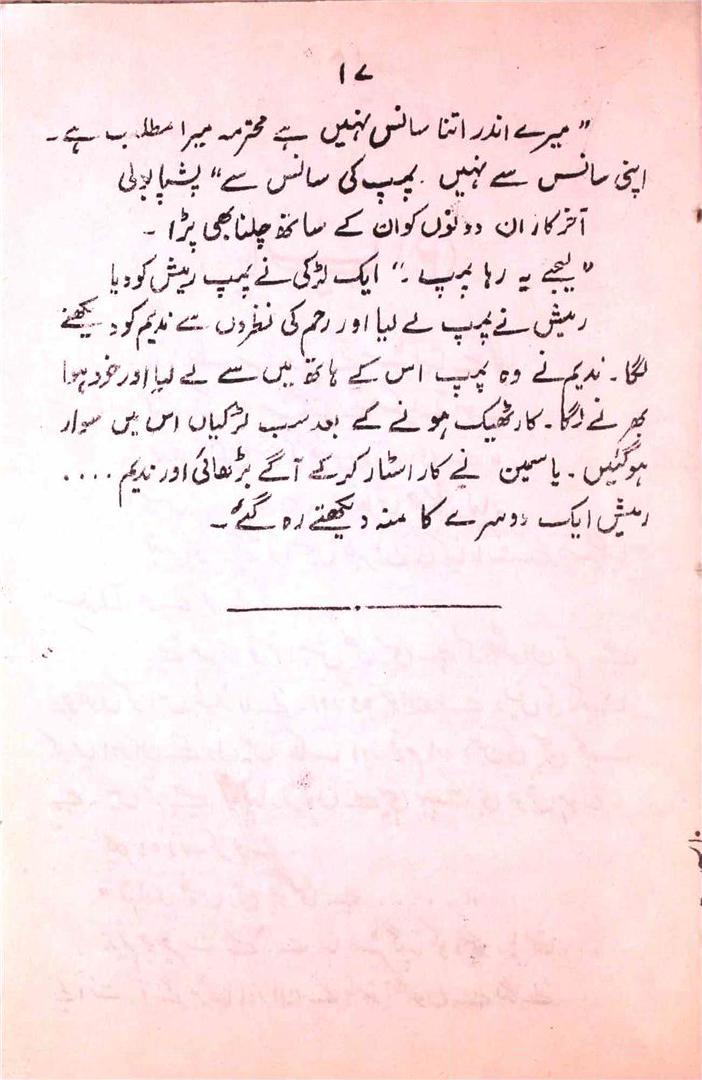 ۱۷
" میرے اندر اتنا سانس نہیں ہے محترمہ میرا مطلب ہے۔
اپنی سانس سے نہیں۔ پمپ کی سانس سے " پشپا بولی
آخر کار ان دونوں کو ان کے ساتھ چلنا بھی پڑا ۔
" لیجیے یہ رہا پمپ ۔" ایک لڑکی نے پمپ رمیش کو دیا
رمیش نے پمپ لے لیا اور رحم کی نظروں سے ندیم کو دیکھنے
لگا۔ ندیم نے وہ پمپ اس کے ہاتھ میں سے لے لیا اور خود ہوا
بھرنے لگا۔ کار ٹھیک ہونے کے بعد سب لڑکیاں اس میں سوار
ہو گئیں۔ یاسمین نے کار اسٹار کر کے آگے بڑھائی اور ندیم ....
رمیش ایک دوسرے کا منہ دیکھتے رہ گئے۔